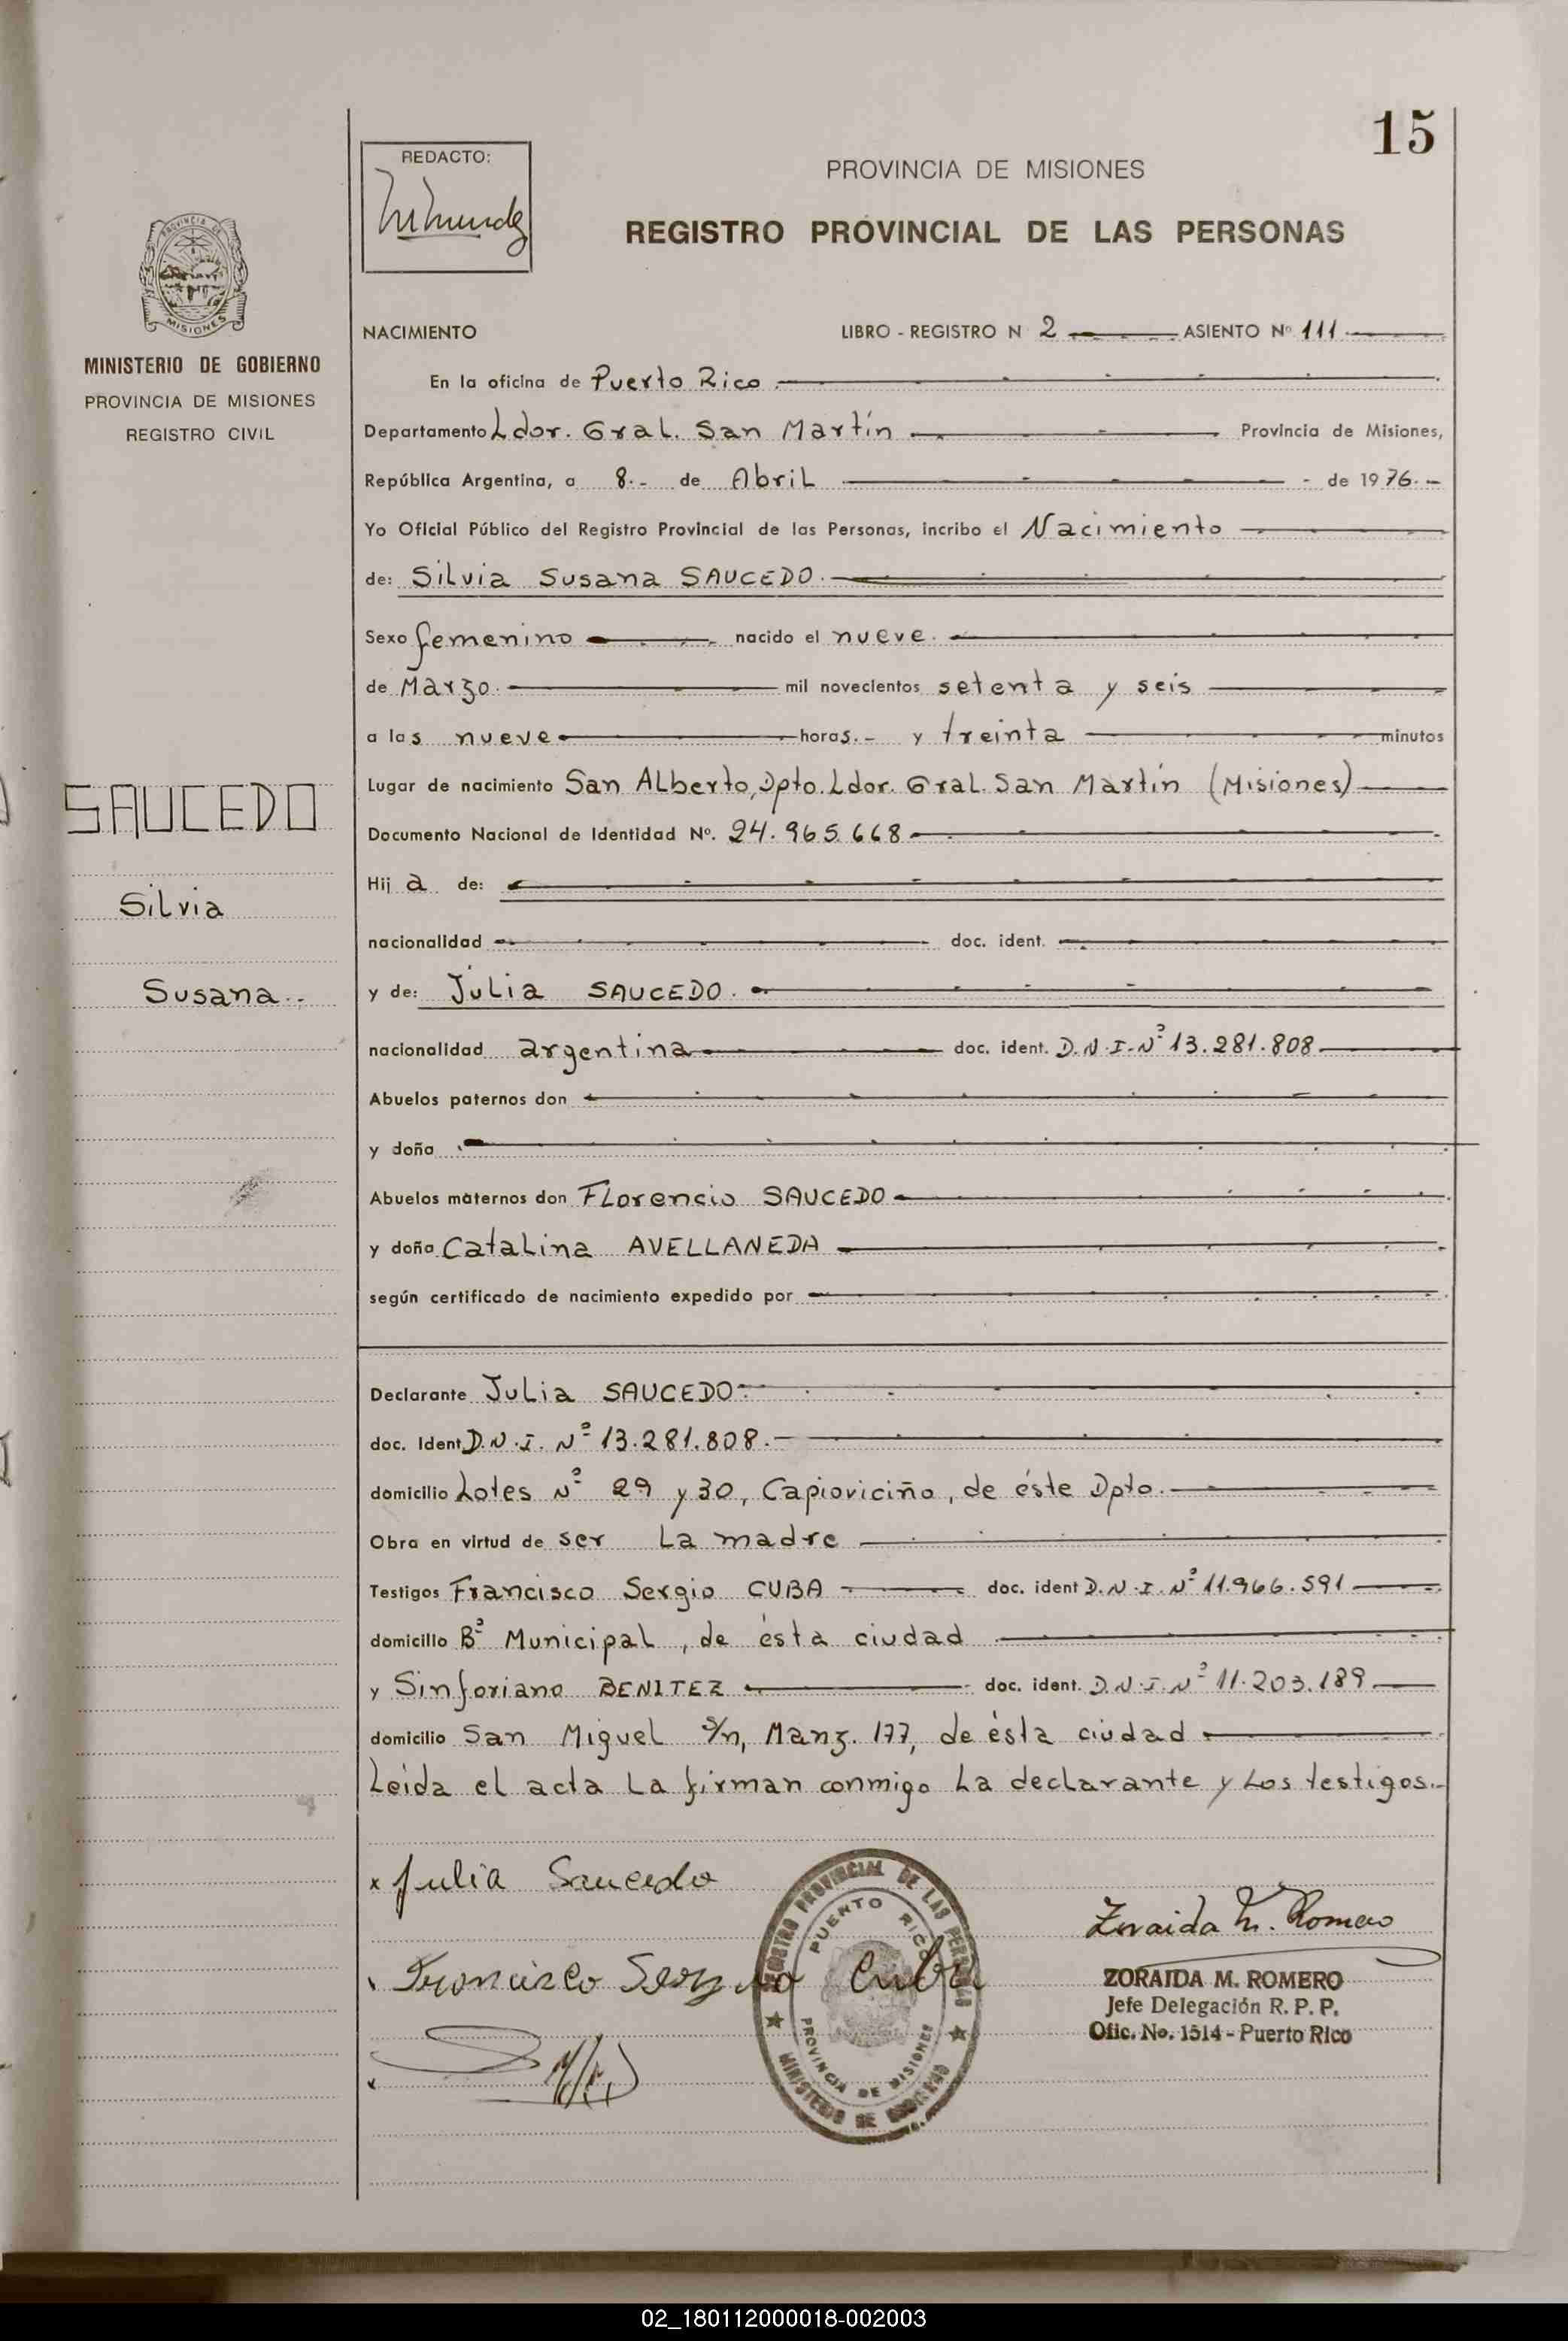 15
REDACTO:
PROVINCIA DE MISIONES
REGISTRO PROVINCIAL DE LAS PERSONAS
PROVINCIA DE
MISIONES
MINISTERIO DE GOBIERNO
PROVINCIA DE MISIONES
REGISTRO CIVIL
NACIMIENTO LIBRO - REGISTRO N 2 ASIENTO Nº 111.
En la oficina de Puerto Rico
Departamento Ldor. Gral. San Martín Provincia de Misiones,
República Argentina, a 8.- de Abril de 1976.-
Yo Oficial Público del Registro Provincial de las Personas, incribo el Nacimiento
de: Silvia Susana SAUCEDO.
Sexo femenino nacido el nueve.
de Marzo. mil novecientos setenta y seis
a las nueve horas.- y treinta minutos
Lugar de nacimiento San Alberto, Dpto. Ldor. Gral. San Martín (Misiones)
Documento Nacional de Identidad Nº. 24.965.668
Hij a de:
nacionalidad doc. ident.
y de: Julia SAUCEDO.
nacionalidad argentina doc. ident. D.N.I. Nº 13.281.808
Abuelos paternos don
y doña
Abuelos maternos don Florencio SAUCEDO
y doña Catalina AVELLANEDA
según certificado de nacimiento expedido por
Declarante Julia SAUCEDO
doc. Ident D.N.I. Nº 13.281.808.
domicilio Lotes Nº 29 y 30, Capioviciño, de éste Dpto.
Obra en virtud de ser La madre
Testigos Francisco Sergio CUBA doc. ident D.N.I. Nº 11.966.591
domicilio Bº Municipal, de ésta ciudad
y Sinforiano BENITEZ doc. ident. D.N.I. Nº 11.203.189
domicilio San Miguel S/n, Manz. 177, de ésta ciudad
Leída el acta La firman conmigo La declarante y Los testigos.-
SAUCEDO
Silvia
Susana.-
x Julia Saucedo
Francisco Sergio Cuba
REGISTRO PROVINCIAL DE LAS PERSONAS
PUERTO RICO
PROVINCIA DE MISIONES
MINISTERIO DE GOBIERNO
Zoraida M. Romero
ZORAIDA M. ROMERO
Jefe Delegación R. P. P.
Ofic. No. 1514 - Puerto Rico
02_180112000018-002003